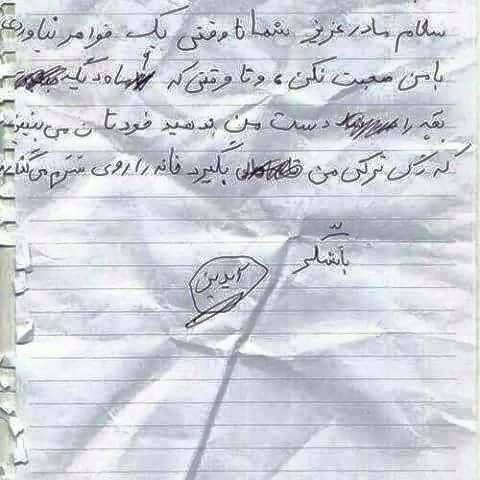 سلام مادر عزیز شما تا وقتی یک خواهر نیاوری
با من صحبت نکن ، و تا وقتی که ماه دیگه
را دست من بدهید خودتان می بینید
که رگ ترکی من بگیرد خانه را روی سرم می گذارم
با تشکر
آیدین